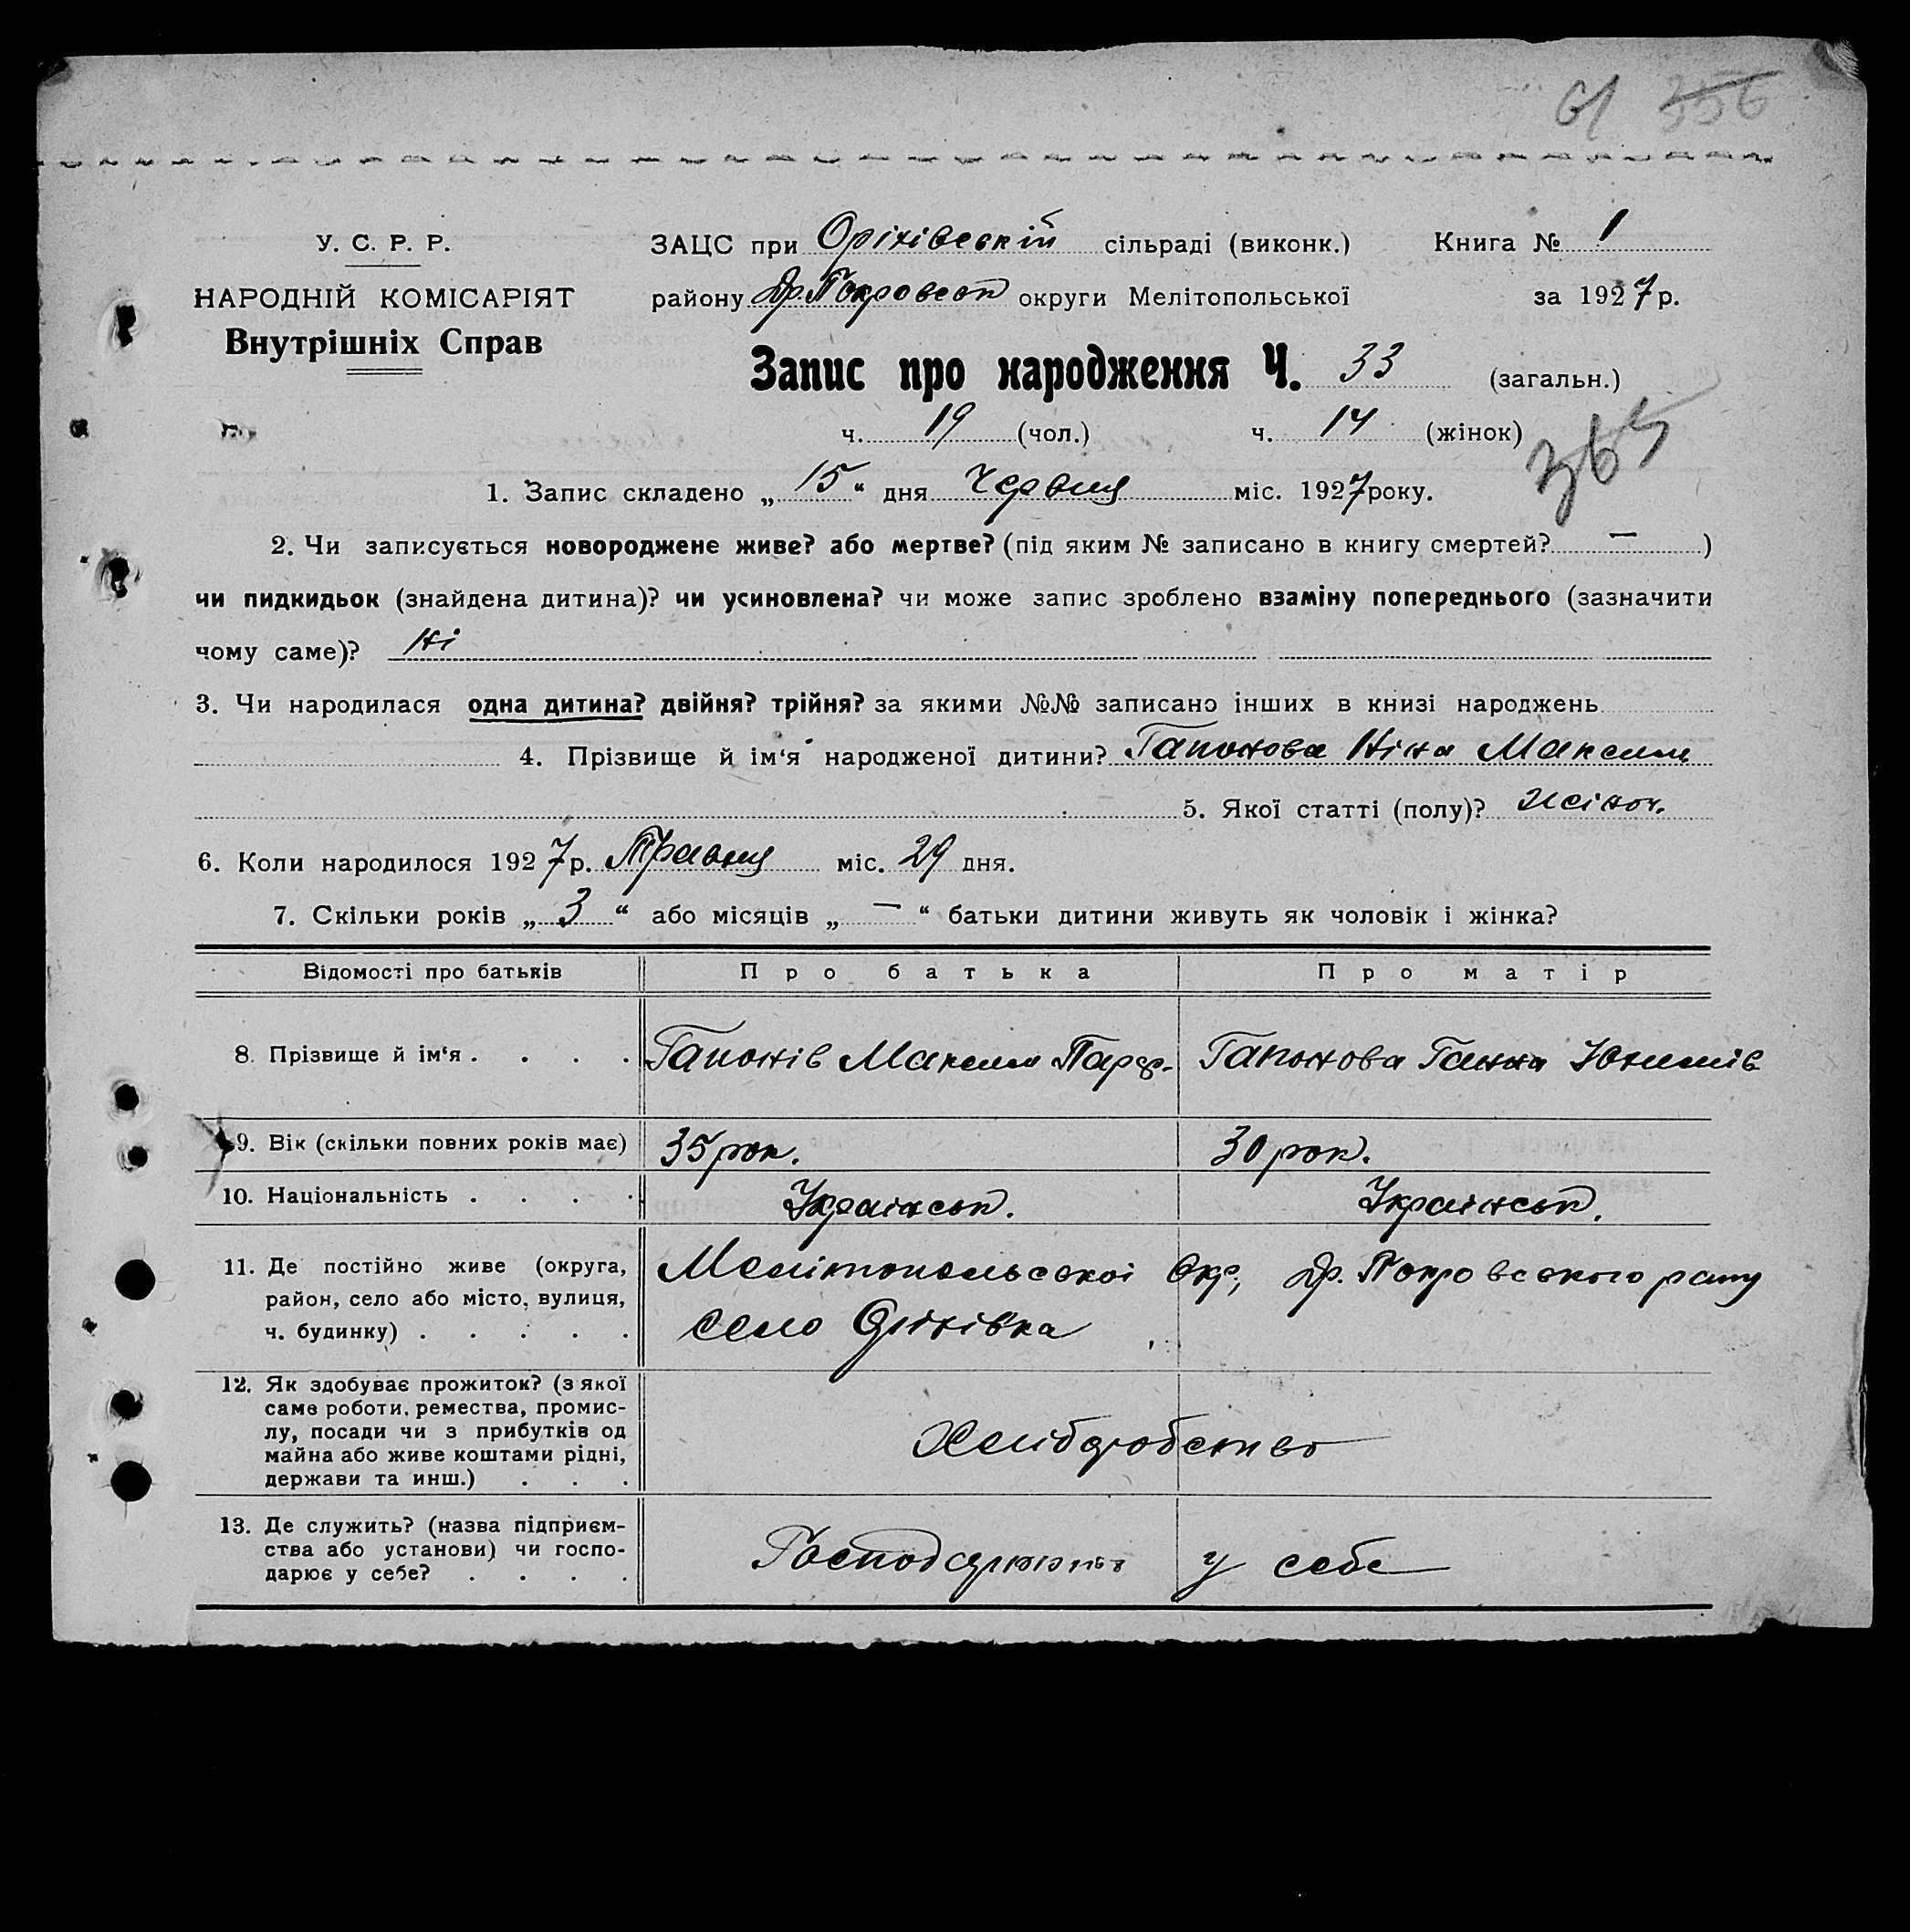 61 356
У. С. Р. Р.
НАРОДНІЙ КОМІСАРІЯТ
Внутрішніх Справ
ЗАЦС при Оріхівській сільраді (виконк.) Книга № 1
району Др. Покровськ округи Мелітопольської за 1927 р.
Запис про народження Ч. 33 (загальн.)
ч. 19 (чол.) ч. 14 (жінок)
365
1. Запис складено „15“ дня Червня міс. 1927 року.
2. Чи записується новороджене живе? або мертве? (під яким № записано в книгу смертей? — )
чи пидкидьок (знайдена дитина)? чи усиновлена? чи може запис зроблено взаміну попереднього (зазначити
чому саме)? Ні
3. Чи народилася одна дитина? двійня? трійня? за якими №№ записано інших в книзі народжень
4. Прізвище й ім‘я народженої дитини? Гапонова Ніна Максим
5. Якої статті (полу)? Жіноч.
6. Коли народилося 1927 р. Травня міс. 29 дня.
7. Скільки років „3“ або місяців „—“ батьки дитини живуть як чоловік і жінка?
Відомості про батьків Про батька Про матір
8. Прізвище й ім‘я . . . . Гапонів Максим Парф. Гапонова Ганна Юхимів
9. Вік (скільки повних років має) 35 рок. 30 рок.
10. Національність . . . . Українськ. Українськ.
11. Де постійно живе (округа, Мелітопольської Окр, Др. Покровського рану
район, село або місто, вулиця, село Оріхівка
ч. будинку) . . . . .
12. Як здобуває прожиток? (з якої
саме роботи, ремества, промис-
лу, посади чи з прибутків од Хліборобство
майна або живе коштами рідні,
держави та инш.) . . .
13. Де служить? (назва підприєм-
ства або установи) чи госпо- у себе
дарює у себе? . . . .